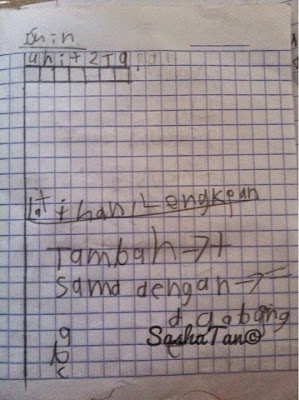 unit 2 T g
Latihan Lengkapan
Tambah → +
sama dengan → =
a d gabang
b
c
SashaTan©